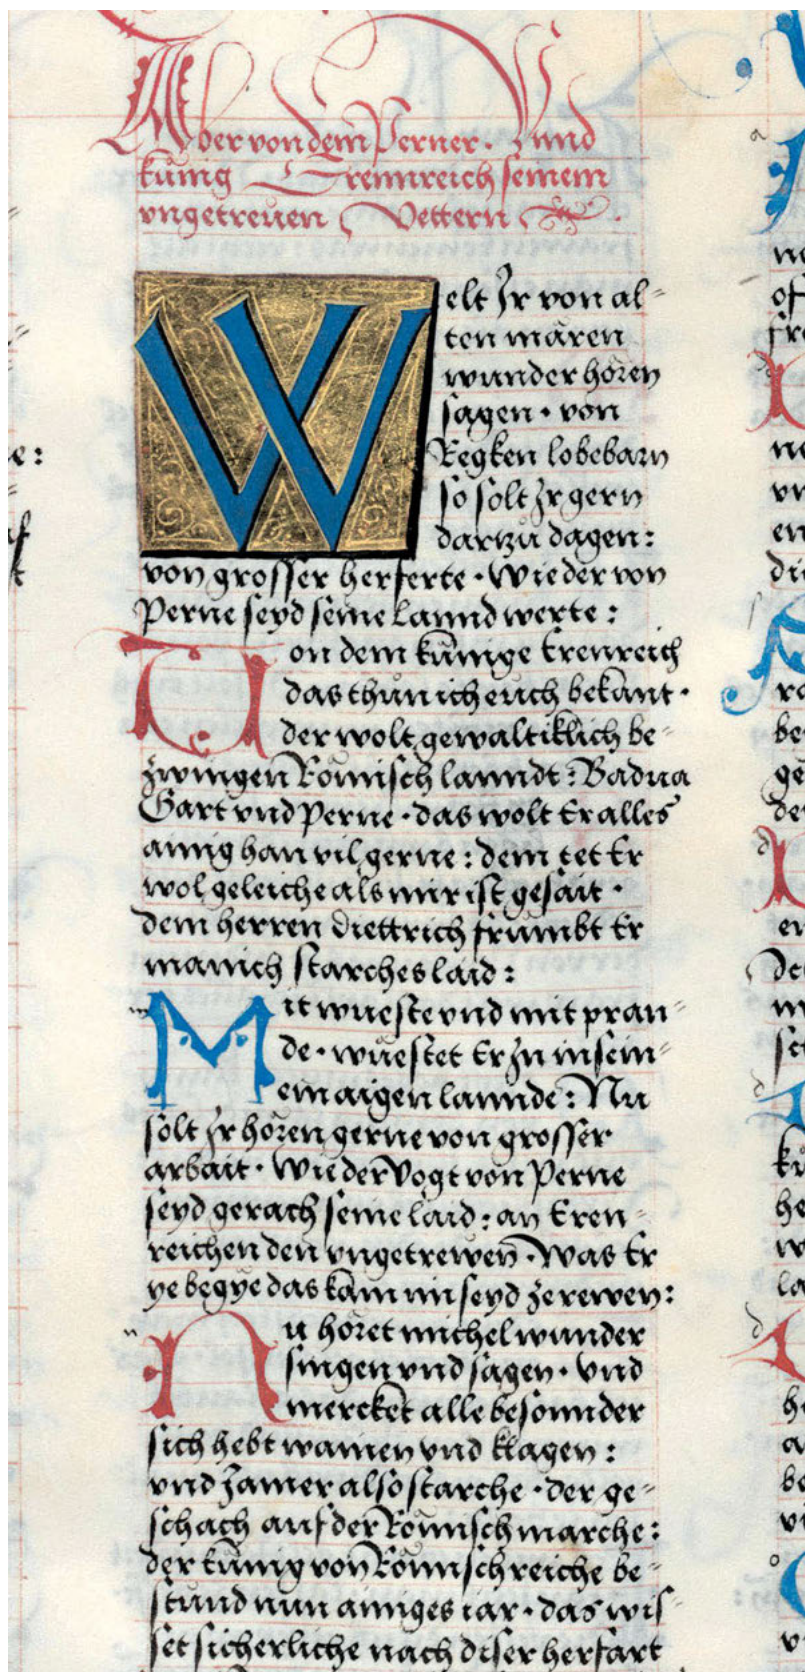 Aber von dem Perner. Vnnd
künig Erennreich seinem
vngetreuen Vettern
Welt Ir von al-
ten mären
wunder hören
sagen · von
Regken lobebarn
so solt Ir gern
dartzů dagen:
von grosser herferte · Wie der von
Perne seyd seine lannd werte:
Von dem künige Erenreich
das thůn ich euch bekant ·
der wolt gewaltiklich be-
zwingen Römisch lanndt: Badua
Gart vnd Perne · das wolt Er alles
ainig han vil gerne: dem tet Er
wol geleiche als mir ist gesait ·
dem herren Diettrich frumbt Er
manich starches laid:
Mit wueste vnd mit pran-
de · wůestet Er In in sein-
em aigen lannde: Nu
solt Ir hören gerne von grosser
arbait · Wie der Vogt von Perne
seyd gerach seine laid: an Eren-
reichen den vngetrewen̄ · Was Er
ye begye das kam im seyd ze rewen:
Nu höret michel wunder
singen vnd sagen · vnd
mercket alle besonnder
sich hebt wainen vnd klagen:
vnd Jamer also starche · der ge-
schach auf der Römisch marche:
der künig von Römisch reiche be-
stůnd nun ainiges iar · das wis-
set sicherliche nach diser herfart